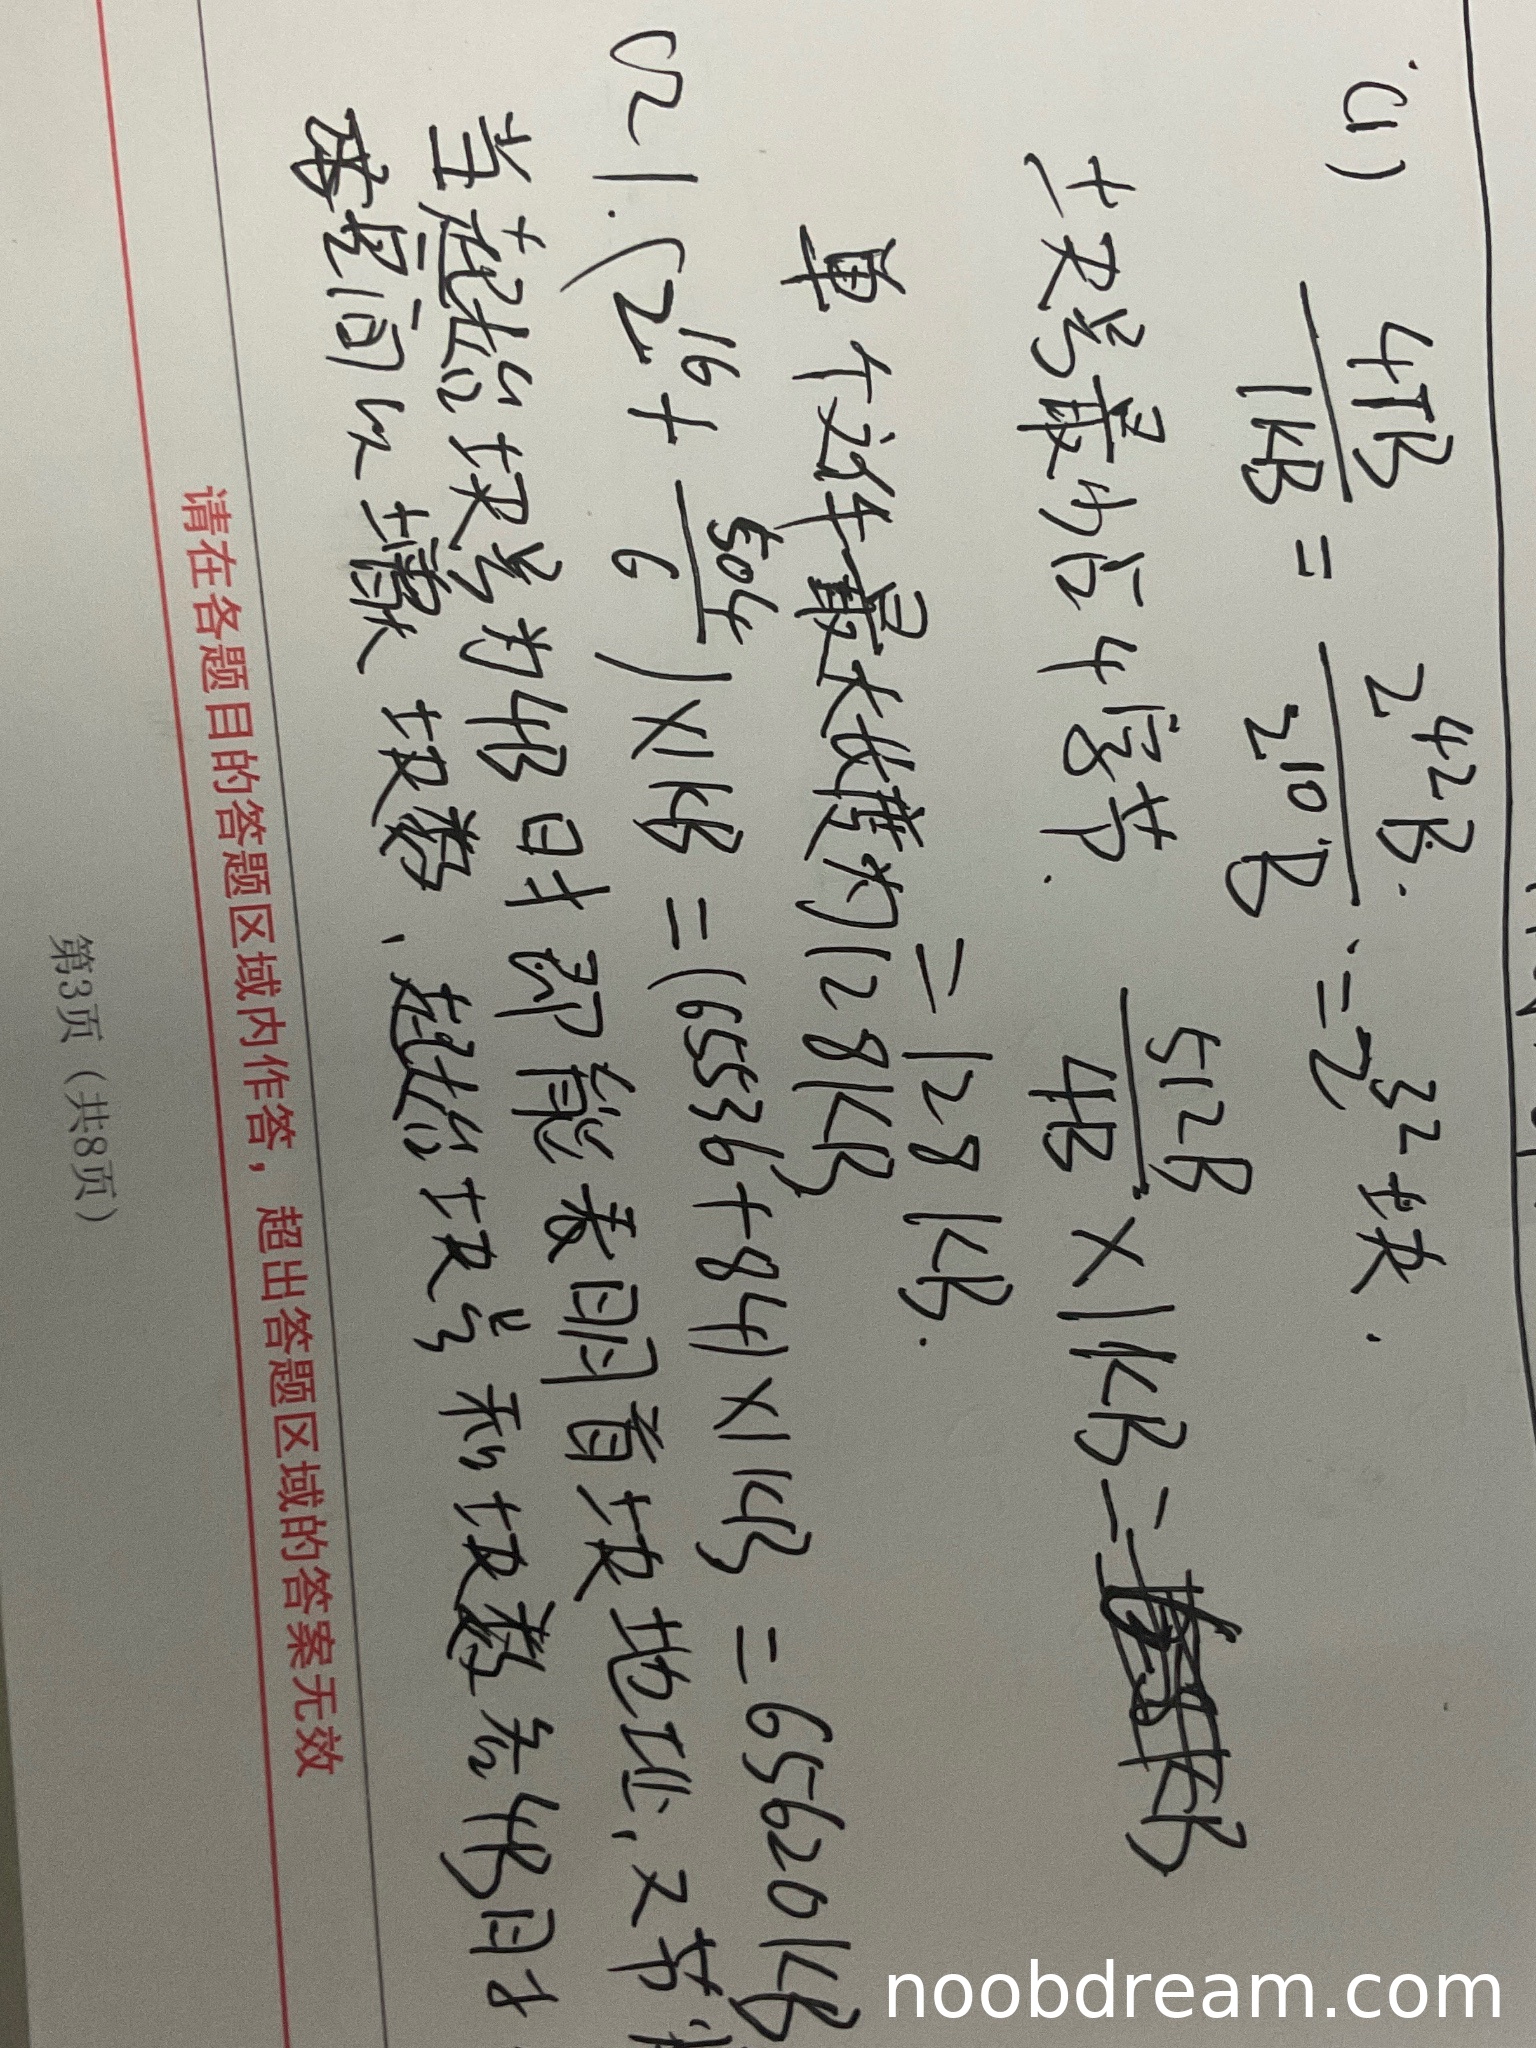 (1) 4TB/1KB = 2^42B/2^10B = 2^32块.
块号最少占4字节. 512B/4B × 1KB =
= 128KB.
单个文件最大长度为128KB
(2). (2^16 + 504/6) × 1KB = (65536 + 84) × 1KB = 65620KB
当起始块号为4B时即能表明首块地址,又节
空间以 块数,起始块号和块数各4B时
请在各题目的答题区域内作答，超出答题区域的答案无效
第3页（共8页）
noobdream.com